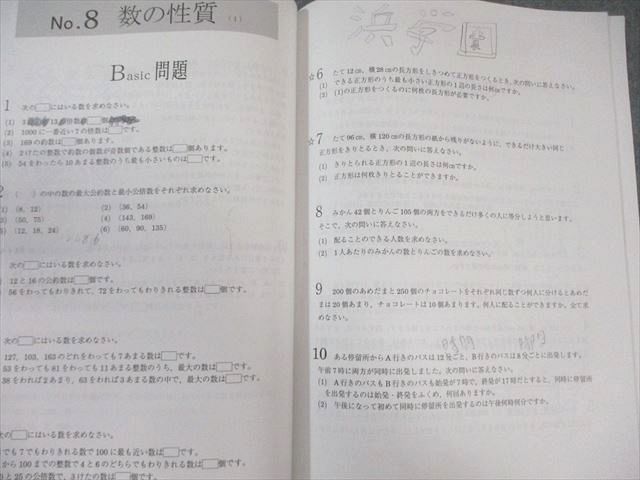 No.8 数の性質 (1)
Basic 問題
1 次の□にはいる数を求めなさい。
(2) 1000に一番近い7の倍数は□です。
(3) 169の約数は□個あります。
(4) 2けたの整数で約数の個数が奇数個である整数は□個あります。
(5) 54をわったら10あまる整数のうち最も小さいものは□です。
2 ( )の中の数の最大公約数と最小公倍数をそれぞれ求めなさい。
(1) (8, 12) (2) (36, 54)
(3) (50, 75) (4) (143, 169)
(5) (12, 18, 24) (6) (60, 90, 135)
次の□にはいる数を求めなさい。
12と16の公約数は□個です。
56をわってもわりきれて、72をわってもわりきれる整数は□個です。
次の□にはいる数を求めなさい。
127, 103, 163のどれをわっても7あまる数は□です。
53をわっても81をわっても11あまる整数のうち、最大の数は□です。
38をわれば2あまり、63をわれば3あまる数の中で、最大の数は□です。
次の□にはいる数を求めなさい。
でも7でもわりきれる数で100に最も近い数は□です。
から100までの整数で4と6のどちらでもわりきれる数は□個です。
と25の公倍数で、3けたの数は□個です。
浜学
☆6 たて12cm、横28cmの長方形をしきつめて正方形をつくるとき、次の問いに答えなさい。
(1) できる正方形のうち最も小さい正方形の1辺の長さは何cmですか。
(2) (1)の正方形をつくるのに何枚の長方形が必要ですか。
☆7 たて96cm、横120cmの長方形の紙から残りがないように、できるだけ大きい同じ
正方形をきりとるとき、次の問いに答えなさい。
(1) きりとられる正方形の1辺の長さは何cmですか。
(2) 正方形は何枚きりとることができますか。
8 みかん42個とりんご105個の両方をできるだけ多くの人に等分しようと思います。
そこで、次の問いに答えなさい。
(1) 配ることのできる人数を求めなさい。
(2) 1人あたりのみかんの数とりんごの数を求めなさい。
9 200個のあめだまと250個のチョコレートをそれぞれ同じ数ずつ何人に分けるとあめだ
まは20個あまり、チョコレートは10個あまります。何人に配ることができますか。全て求
めなさい。
10 ある停留所からA行きのバスは12分ごと、B行きのバスは8分ごとに出発します。
午前7時に両方が同時に出発しました。次の問いに答えなさい。
(1) A行きのバスもB行きのバスも始発が7時で、終発が17時だとすると、同時に停留所
を出発するのは始発・終発をふくめ、何回ありますか。
(2) 午後になって初めて同時に停留所を出発するのは午後何時何分ですか。